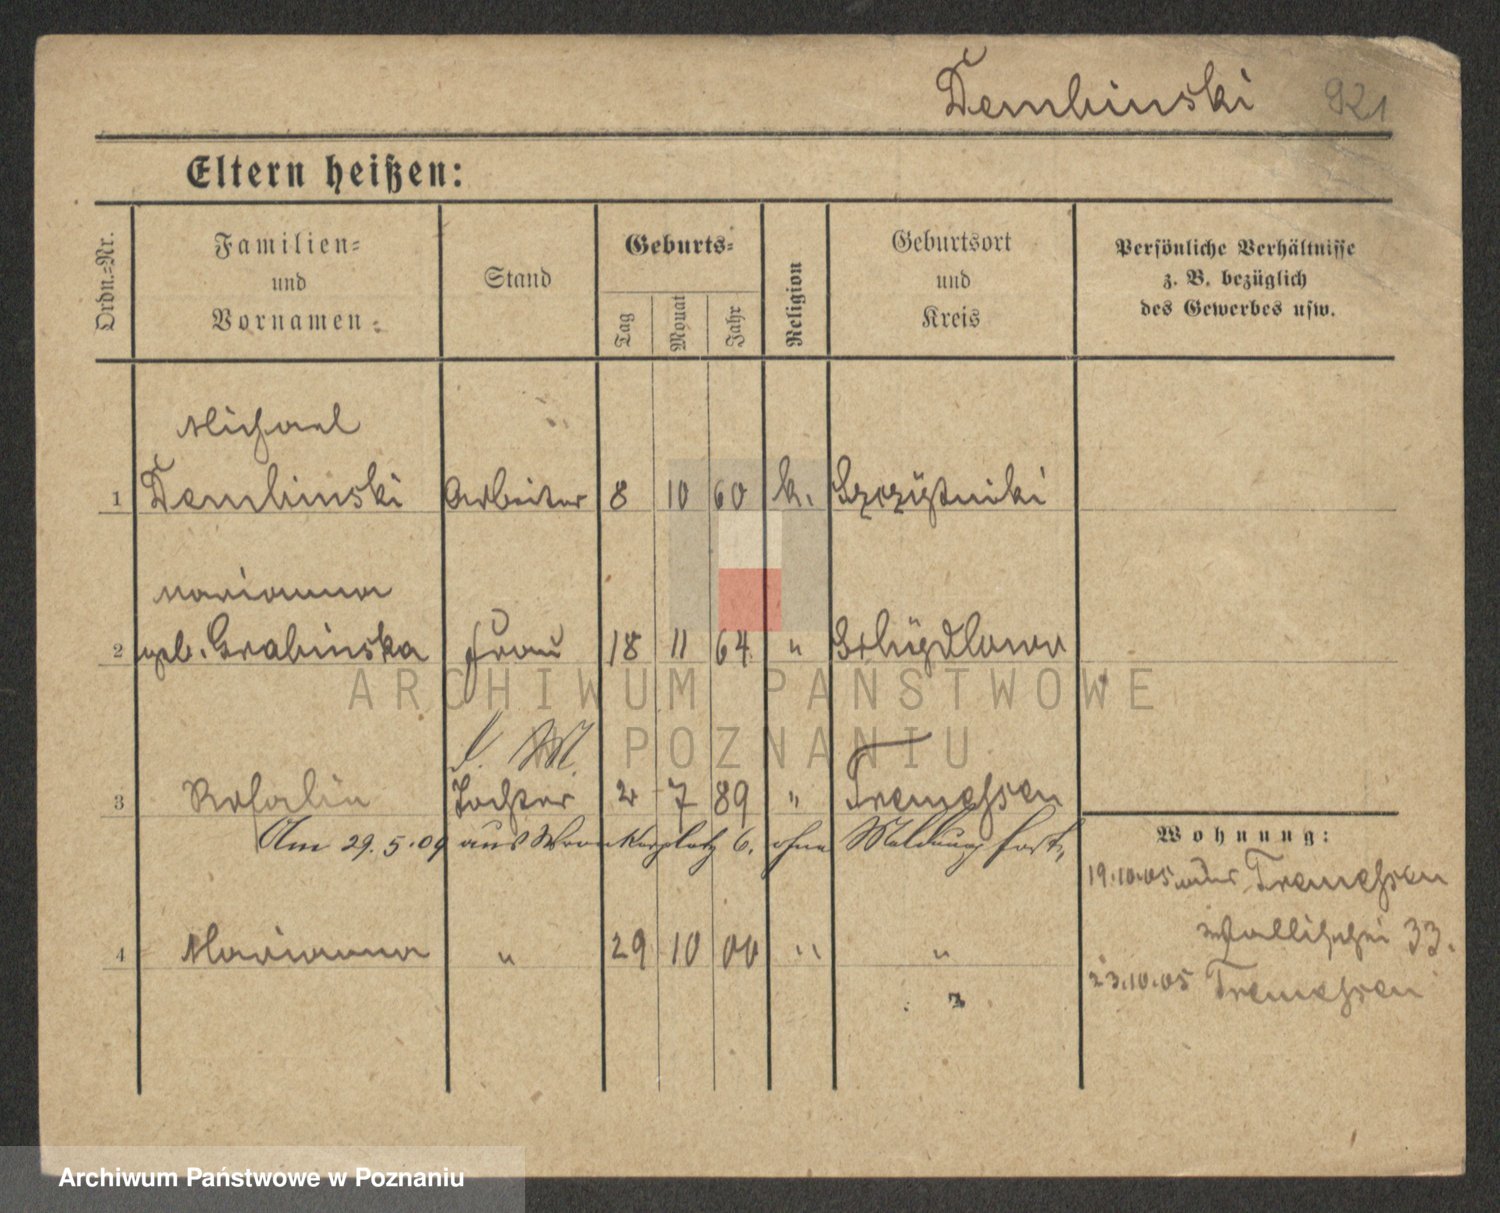 Dembinski 921
Eltern heißen:
Ordn.=Nr.
Familien= und Vornamen
Stand
Geburts=
Tag
Monat
Jahr
Religion
Geburtsort und Kreis
Persönliche Verhältnisse
z. B. bezüglich
des Gewerbes usw.
Michael
1 Dembinski Arbeiter 8 10 60 k.
Marianna
2 geb. Grabinska Frau 18 11 64 "
ARCHIWUM PAŃSTWOWE
W POZNANIU
3 Rosalie Tochter 2 7 89 " Tremessen
Am 29.5.09 aus Wronkerplatz 6. ohne Meldung fort.
4 Marianna " 29 10 00 " "
Wohnung:
19.10.05 Tremessen
Wallischei 33.
23.10.05 Tremessen
Archiwum Państwowe w Poznaniu